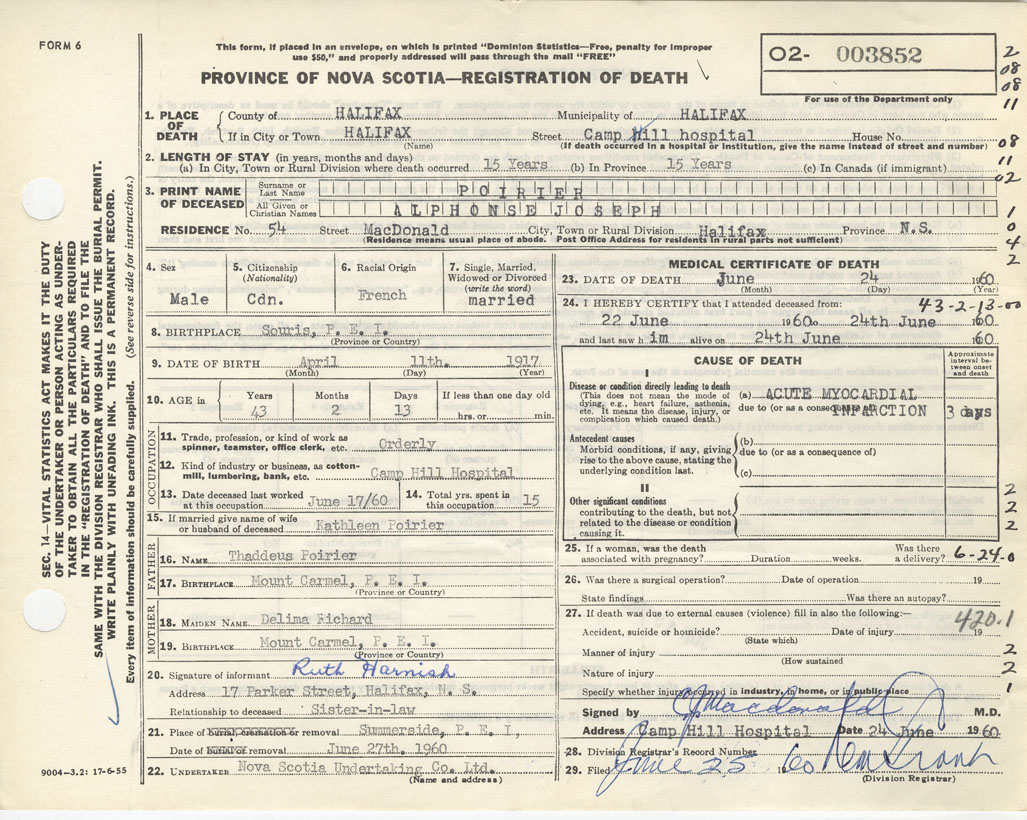 FORM 6
This form, if placed in an envelope, on which is printed "Dominion Statistics—Free, penalty for improper
use $50," and properly addressed will pass through the mail "FREE"
PROVINCE OF NOVA SCOTIA—REGISTRATION OF DEATH
02- 003852
For use of the Department only
2
08
08
11
1. PLACE OF DEATH County of HALIFAX Municipality of HALIFAX
If in City or Town HALIFAX Street Camp Hill hospital House No.
(Name) (If death occurred in a hospital or institution, give the name instead of street and number)
08
2. LENGTH OF STAY (in years, months and days)
11
(a) In City, Town or Rural Division where death occurred 15 Years (b) In Province 15 Years (c) In Canada (if immigrant)
02
3. PRINT NAME OF DECEASED
Surname or Last Name POIRIER
All Given or Christian Names ALPHONSE JOSEPH
1
0
4
2
RESIDENCE No. 54 Street MacDonald City, Town or Rural Division Halifax Province N.S.
(Residence means usual place of abode. Post Office Address for residents in rural parts not sufficient)
4. Sex Male
5. Citizenship (Nationality) Cdn.
6. Racial Origin French
7. Single, Married, Widowed or Divorced (write the word) married
8. BIRTHPLACE Souris, P. E. I.
(Province or Country)
9. DATE OF BIRTH April 11th. 1917
(Month) (Day) (Year)
10. AGE in Years Months Days If less than one day old
43 2 13 hrs. or min.
OCCUPATION
11. Trade, profession, or kind of work as spinner, teamster, office clerk, etc. Orderly
12. Kind of industry or business, as cotton-mill, lumbering, bank, etc. Camp Hill Hospital
13. Date deceased last worked at this occupation June 17/60 14. Total yrs. spent in this occupation 15
15. If married give name of wife or husband of deceased Kathleen Poirier
FATHER
16. NAME Thaddeus Poirier
17. BIRTHPLACE Mount Carmel, P. E. I.
(Province or Country)
MOTHER
18. MAIDEN NAME Delima Richard
19. BIRTHPLACE Mount Carmel, P. E. I.
(Province or Country)
20. Signature of informant Ruth Harnish
Address 17 Parker Street, Halifax, N. S.
Relationship to deceased Sister-in-law
21. Place of burial, cremation or removal Summerside, P. E. I,
Date of burial or removal June 27th. 1960
22. UNDERTAKER Nova Scotia Undertaking Co. Ltd.
(Name and address)
MEDICAL CERTIFICATE OF DEATH
23. DATE OF DEATH June 24 1960
(Month) (Day) (Year)
43-2-13-00
24. I HEREBY CERTIFY that I attended deceased from:
22 June 1960 24th June 1960
and last saw him alive on 24th June 1960
CAUSE OF DEATH
Approximate interval between onset and death
I
Disease or condition directly leading to death
(This does not mean the mode of dying, e.g., heart failure, asthenia, etc. It means the disease, injury, or complication which caused death.)
(a) ACUTE MYOCARDIAL
due to (or as a consequence of) INFARCTION 3 days
Antecedent causes
Morbid conditions, if any, giving rise to the above cause, stating the underlying condition last.
(b)
due to (or as consequence of)
(c)
II
Other significant conditions
contributing to the death, but not related to the disease or condition causing it.
2
2
2
25. If a woman, was the death associated with pregnancy? Duration weeks. Was there a delivery?
6-24-0
26. Was there a surgical operation? Date of operation 19
State findings Was there an autopsy?
27. If death was due to external causes (violence) fill in also the following:—
420.1
Accident, suicide or homicide? Date of injury 19
(State which)
Manner of injury 2
(How sustained)
Nature of injury 2
Specify whether injury occurred in industry, in home, or in public place 1
Signed by CJ Macdonald M.D.
Address Camp Hill Hospital Date 24 June 1960
28. Division Registrar's Record Number
29. Filed June 25 1960
(Division Registrar)
SEC. 14—VITAL STATISTICS ACT MAKES IT THE DUTY
OF THE UNDERTAKER OR PERSON ACTING AS UNDER-
TAKER TO OBTAIN ALL THE PARTICULARS REQUIRED
IN THE "REGISTRATION OF DEATH" AND TO FILE THE
SAME WITH THE DIVISION REGISTRAR WHO SHALL ISSUE THE BURIAL PERMIT.
WRITE PLAINLY WITH UNFADING INK. THIS IS A PERMANENT RECORD.
Every item of information should be carefully supplied. (See reverse side for instructions.)
9004-3.2: 17-6-55